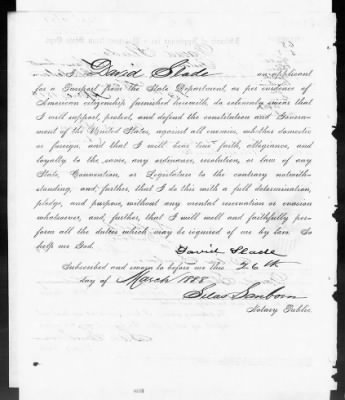 I, David Slade an applicant
for a Passport from the State Department, as per evidence of
American citizenship furnished herewith, do solemnly swear that
I will support, protect, and defend the constitution and Govern-
ment of the United States, against all enemies, whether domestic
or foreign, and that I will bear true faith, allegiance, and
loyalty to the same, any ordinance, resolution, or law of any
State, Convention, or Legislature to the contrary notwith-
standing, and further, that I do this with a full determination,
pledge, and purpose, without any mental reservation or evasion
whatsoever, and, further, that I will well and faithfully per-
form all the duties which may be required of me by law. So
help me God.
David Slade
Subscribed and sworn to before me this 26th
day of March 1888.
Silas Sanborn
Notary Public.